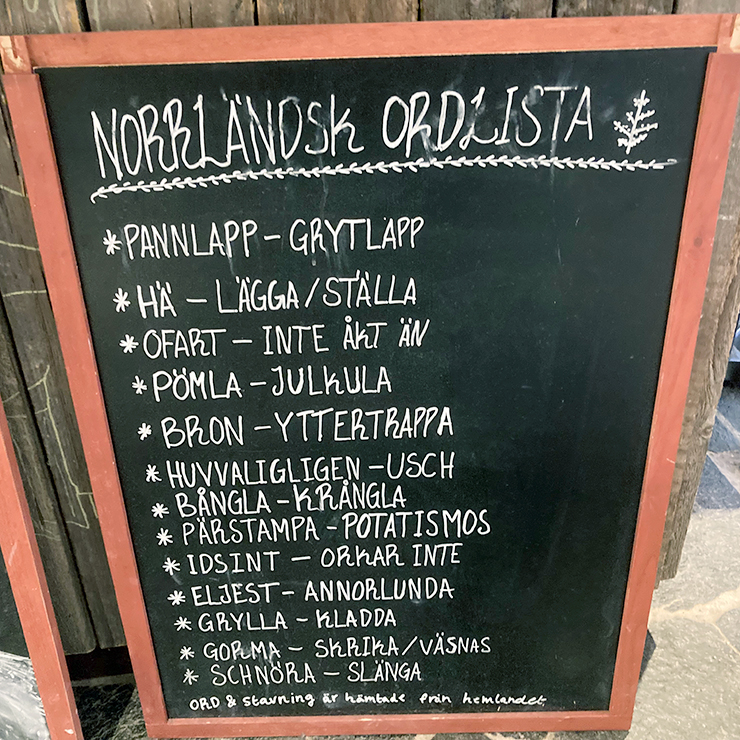 NORRLÄNDSK ORDLISTA
*PANNLAPP – GRYTLAPP
*HÄ – LÄGGA/STÄLLA
*OFART – INTE ÅKT ÄN
*PÖMLA – JULKULA
*BRON – YTTERTRAPPA
*HUVVALIGLIGEN – USCH
*BÅNGLA – KRÅNGLA
*PÄRSTAMPA – POTATISMOS
*IDSINT – ORKAR INTE
*ELJEST – ANNORLUNDA
*GRYLLA – KLADDA
*GORMA – SKRIKA/VÄSNAS
*SCHNÖRA – SLÄNGA
ORD & stavning är hämtade från hemlandet.